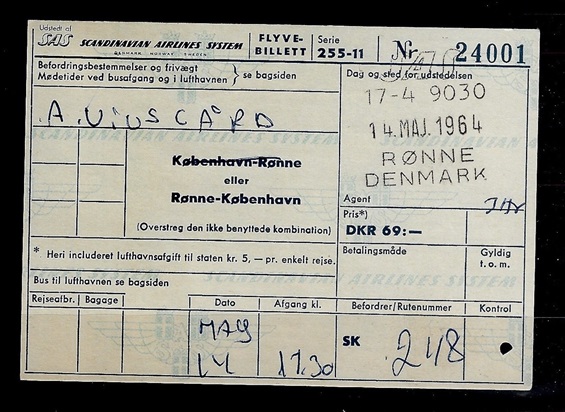 Udstedt af
SAS SCANDINAVIAN AIRLINES SYSTEM
DENMARK NORWAY SWEDEN
FLYVE-
BILLETT
Serie
255-11
Nr. 24001
Befordringsbestemmelser og frivægt
Mødetider ved busafgang og i lufthavnen } se bagsiden
Dag og sted for udstedelsen
17-4 9030
14. MAJ. 1964
RØNNE
DENMARK
København-Rønne
eller
Rønne-København
(Overstreg den ikke benyttede kombination)
Agent
Pris*)
DKR 69:—
* Heri includeret lufthavnsafgift til staten kr. 5, — pr. enkelt rejse.
Betalingsmåde
Gyldig
t. o. m.
Bus til lufthavnen se bagsiden
Rejseafbr. Bagage Dato Afgang kl. Befordrer/Rutenummer Kontrol
MAJ
14 17.30 SK 248